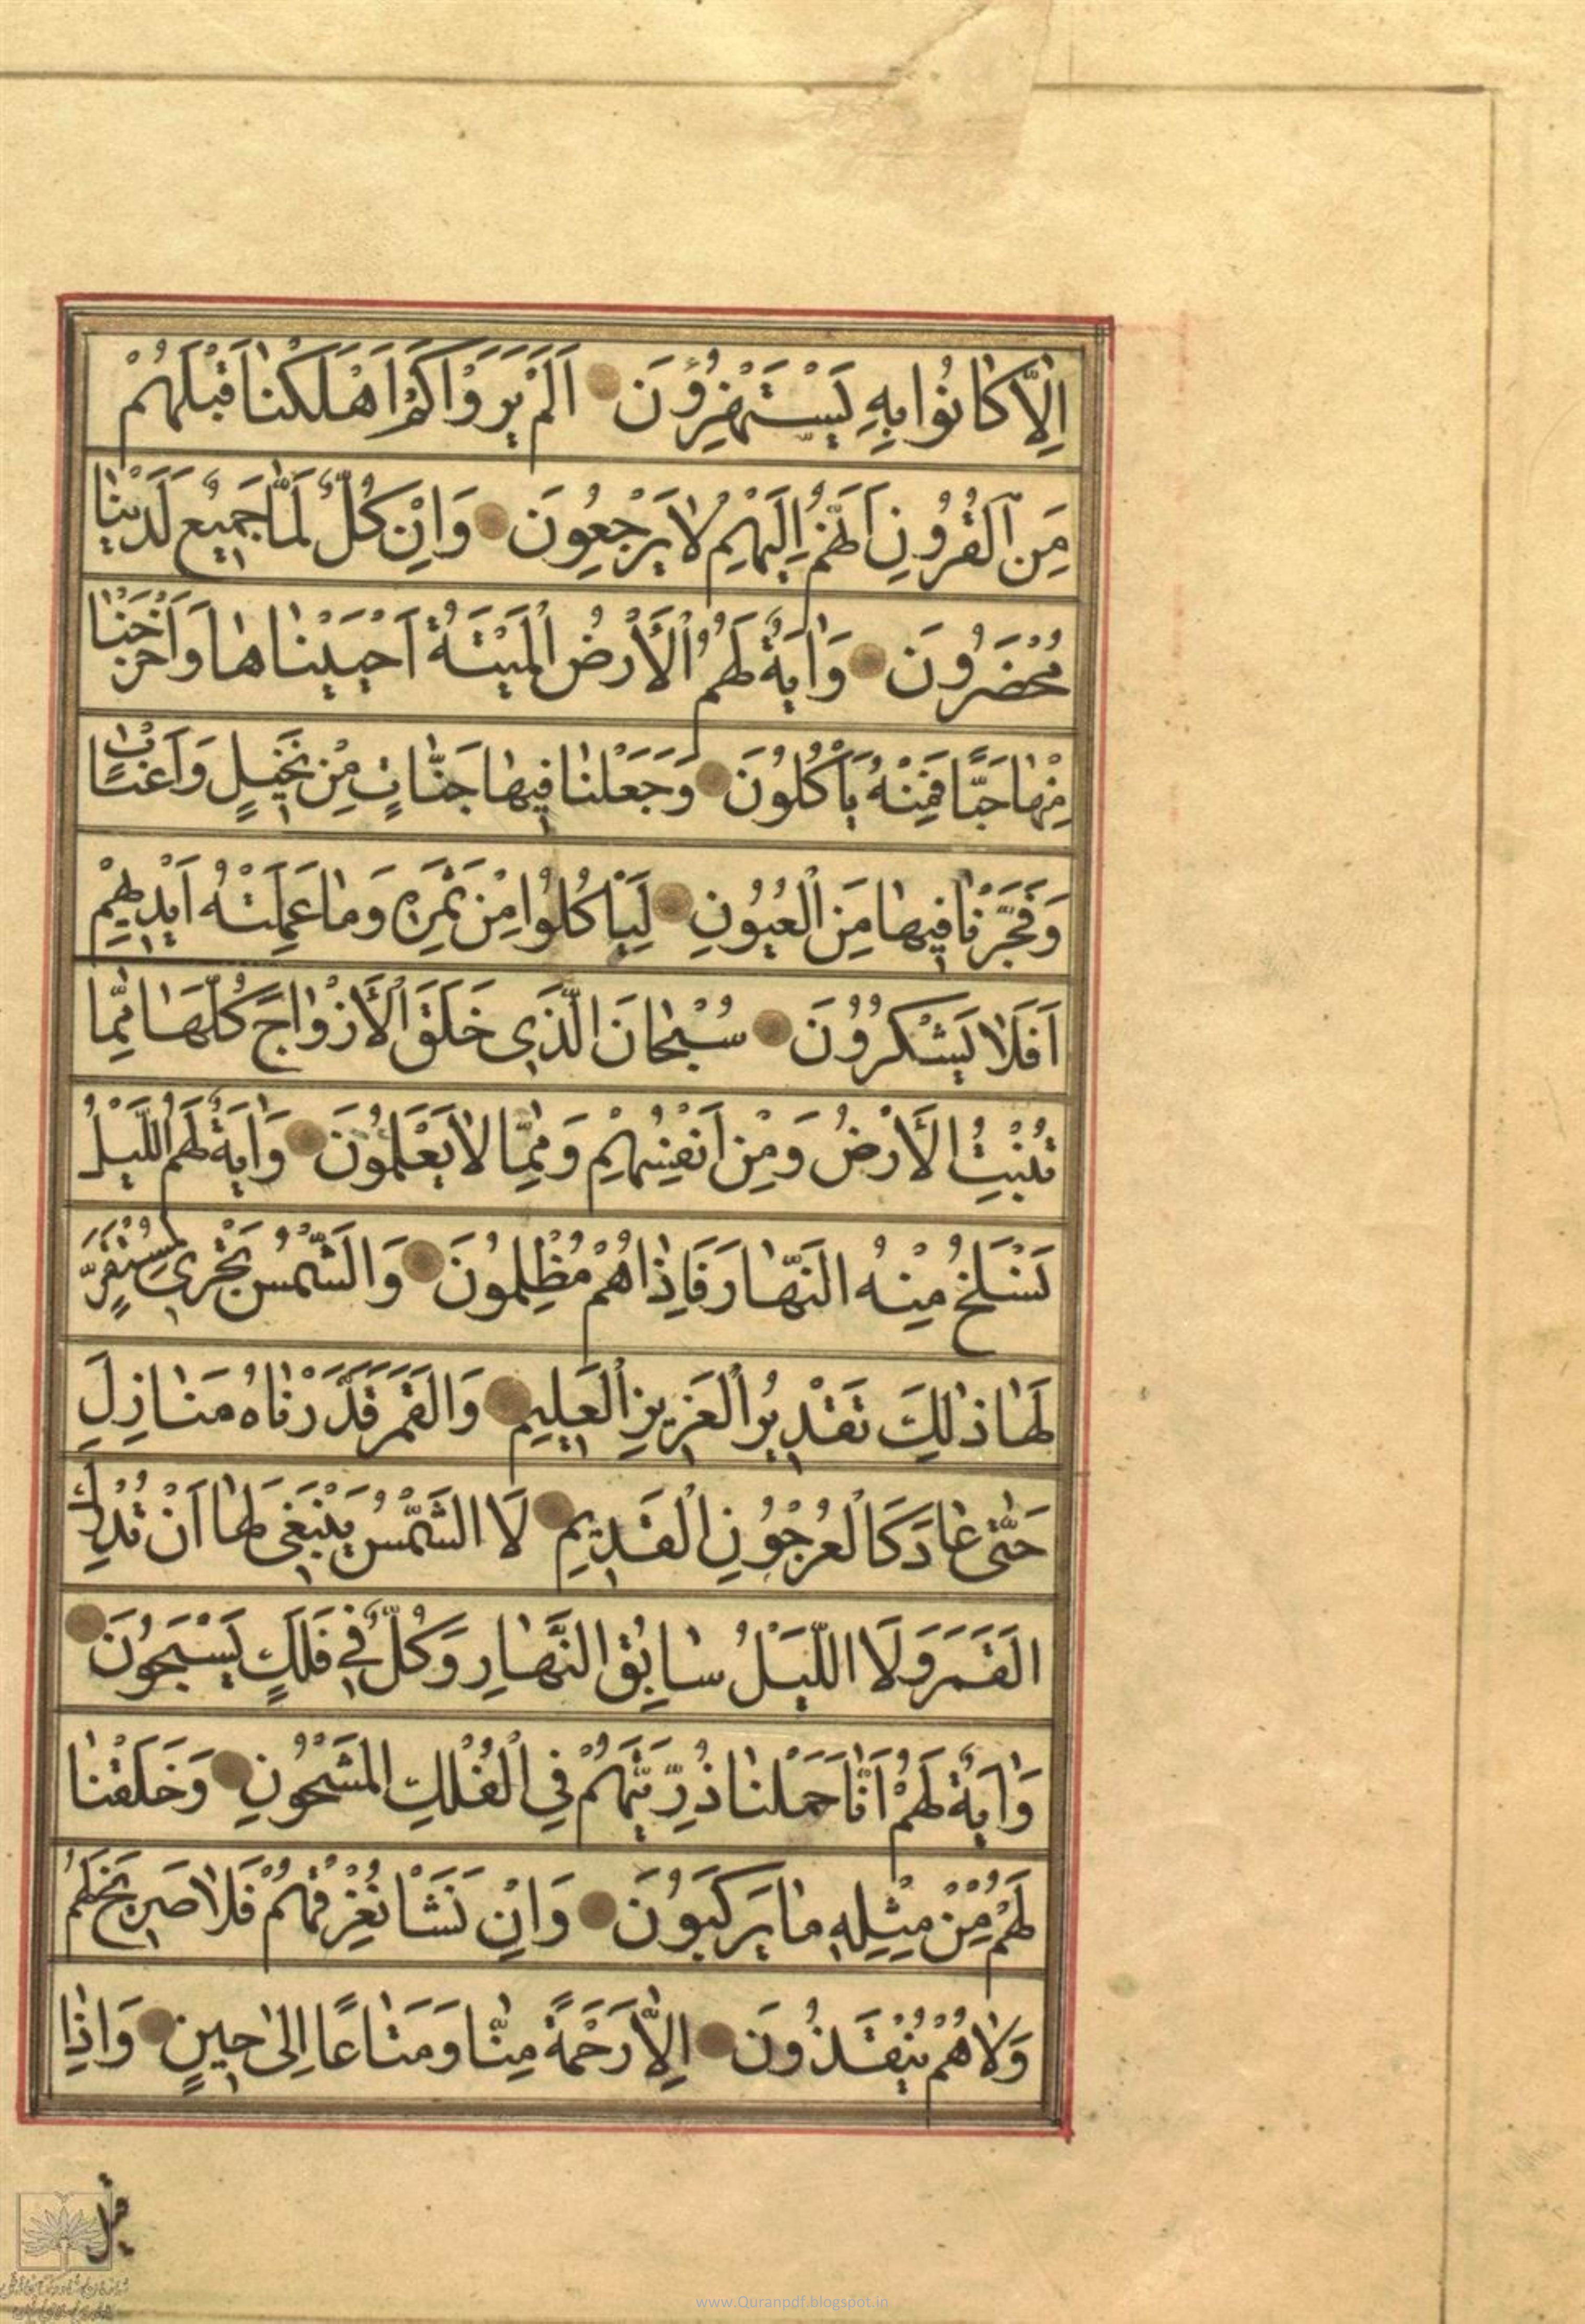 اِلّٰا كٰانُوا بِهِ يَسْتَهْزِؤُنَ اَلَمْ يَرَوْا كَمْ اَهْلَكْنٰا قَبْلَهُمْ
مِنَ الْقُرُونِ اَنَّهُمْ اِلَيْهِمْ لٰا يَرْجِعُونَ وَاِنْ كُلٌّ لَمّٰا جَمِيعٌ لَدَيْنٰا
مُحْضَرُونَ وَاٰيَةٌ لَهُمُ الْأَرْضُ الْمَيْتَةُ اَحْيَيْنٰاهٰا وَاَخْرَجْنٰا
مِنْهٰا حَبًّا فَمِنْهُ يَأْكُلُونَ وَجَعَلْنٰا فِيهٰا جَنّٰاتٍ مِنْ نَخِيلٍ وَاَعْنٰابٍ
وَفَجَّرْنٰا فِيهٰا مِنَ الْعُيُونِ لِيَأْكُلُوا مِنْ ثَمَرِهِ وَمٰا عَمِلَتْهُ اَيْدِيهِمْ
اَفَلٰا يَشْكُرُونَ سُبْحٰانَ الَّذِي خَلَقَ الْأَزْوٰاجَ كُلَّهٰا مِمّٰا
تُنْبِتُ الْأَرْضُ وَمِنْ اَنْفُسِهِمْ وَمِمّٰا لٰا يَعْلَمُونَ وَاٰيَةٌ لَهُمُ اللَّيْلُ
نَسْلَخُ مِنْهُ النَّهٰارَ فَاِذٰا هُمْ مُظْلِمُونَ وَالشَّمْسُ تَجْرِي لِمُسْتَقَرٍّ
لَهٰا ذٰلِكَ تَقْدِيرُ الْعَزِيزِ الْعَلِيمِ وَالْقَمَرَ قَدَّرْنٰاهُ مَنٰازِلَ
حَتّٰى عٰادَ كَالْعُرْجُونِ الْقَدِيمِ لَا الشَّمْسُ يَنْبَغِي لَهٰا اَنْ تُدْرِكَ
الْقَمَرَ وَلَا اللَّيْلُ سٰابِقُ النَّهٰارِ وَكُلٌّ فِي فَلَكٍ يَسْبَحُونَ
وَاٰيَةٌ لَهُمْ اَنّٰا حَمَلْنٰا ذُرِّيَّتَهُمْ فِي الْفُلْكِ الْمَشْحُونِ وَخَلَقْنٰا
لَهُمْ مِنْ مِثْلِهِ مٰا يَرْكَبُونَ وَاِنْ نَشَأْ نُغْرِقْهُمْ فَلٰا صَرِيخَ لَهُمْ
وَلٰا هُمْ يُنْقَذُونَ اِلّٰا رَحْمَةً مِنّٰا وَمَتٰاعًا اِلىٰ حِينٍ وَاِذٰا
قيل
www.Quranpdf.blogspot.in